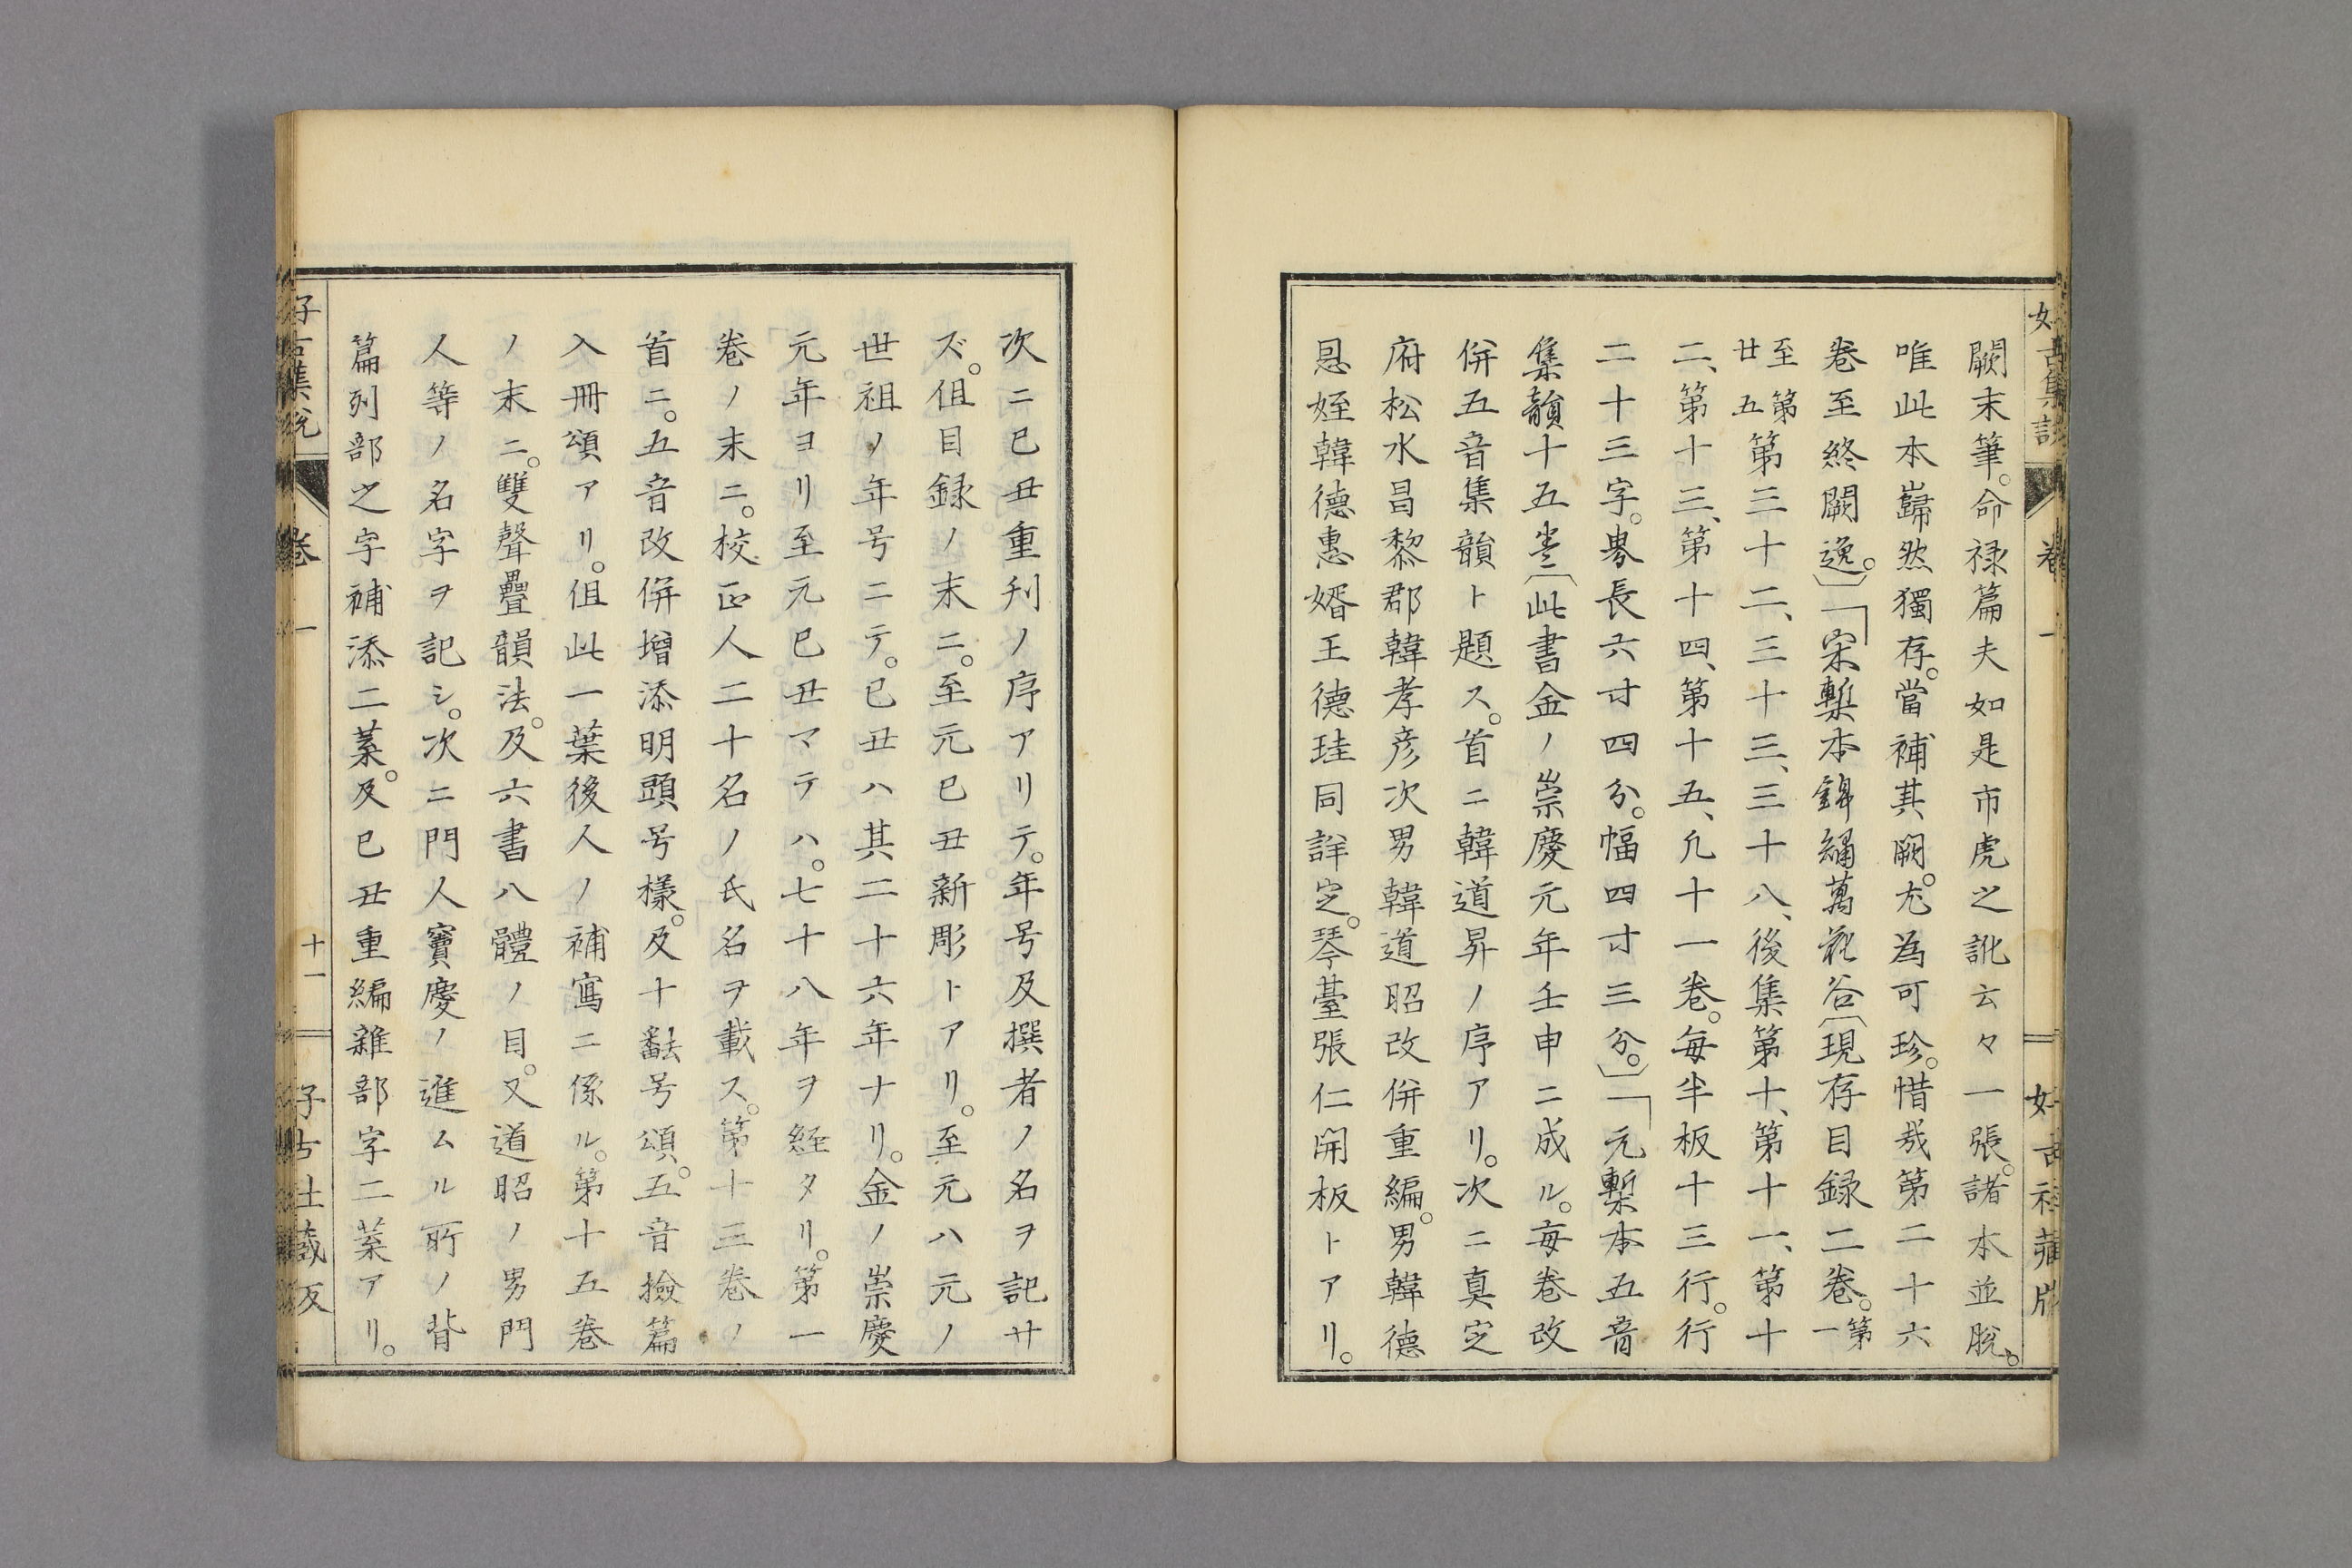 好古集説
卷一
好古社蔵版
闕末筆。命禄篇夫如是市虎之訛云々一張。諸本並脱。
唯此本巋然獨存。當補其闕。尤為可珍。惜哉第二十六
卷至終闕逸。〕「宋槧本錦繡萬花谷〔現存目録二卷。第一
至第廿五第三十二、三十三、三十八、後集第十、第十一、第十
二、第十三、第十四、第十五、凢十一卷。毎半板十三行。行
二十三字。界長六寸四分。幅四寸三分。〕「元槧本五音
集韻十五巻〔此書金ノ崇慶元年壬申ニ成ル。毎卷改
併五音集韻ト題ス。首ニ韓道昇ノ序アリ。次ニ真定
府松水昌黎郡韓孝彦次男韓道昭改併重編。男韓德
恩姪韓德惠婿王德珪同詳定。琴臺張仁開板トアリ。
次ニ已丑重刋ノ序アリテ。年号及撰者ノ名ヲ記サ
ズ。伹目録ノ末ニ。至元已丑新彫トアリ。至元ハ元ノ
世祖ノ年号ニテ。已丑ハ其二十六年ナリ。金ノ崇慶
元年ヨリ至元已丑マテハ。七十八年ヲ経タリ。第一
卷ノ末ニ。校正人二十名ノ氏名ヲ載ス。第十三卷ノ
首ニ。五音改併增添明頭号樣。及十䪤号頌。五音撿篇
入冊頌アリ。伹此一葉後人ノ補寫ニ係ル。第十五卷
ノ末ニ。雙聲疊韻法。及六書八體ノ目。又道昭ノ男門
人等ノ名字ヲ記シ。次ニ門人寶慶ノ進ムル所ノ背
篇列部之字補添二葉。及已丑重編雜部字二葉アリ。
好古集説
卷一
十一
好古社蔵版